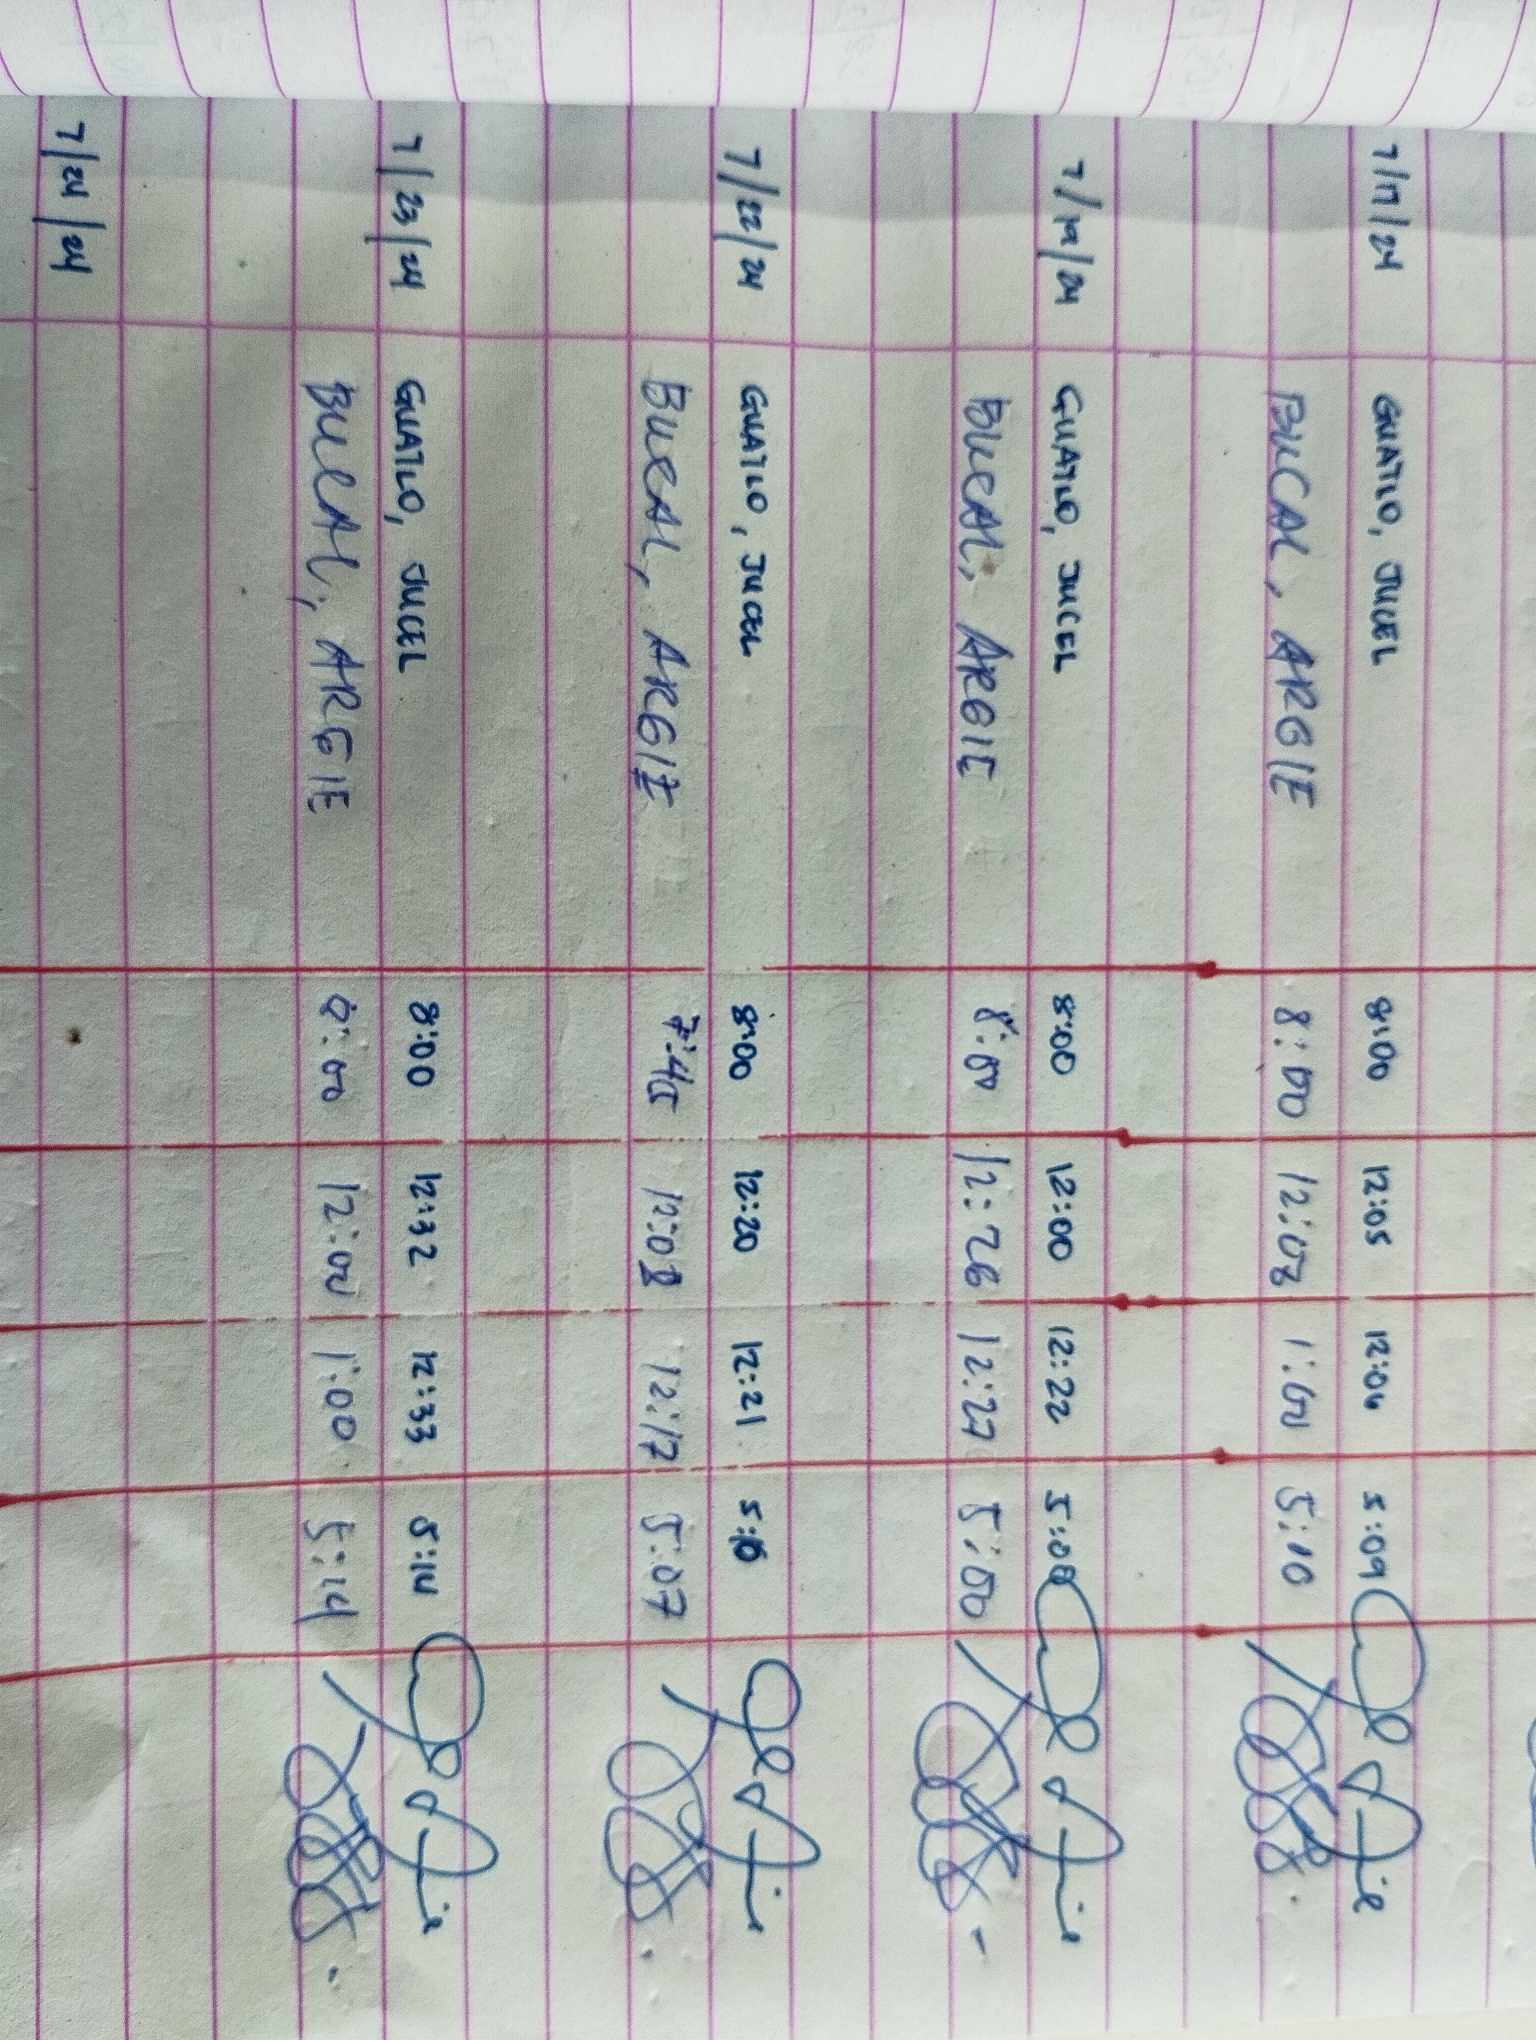 7/17/24 GUATLO, JUCEL 8:00 12:05 12:06 5:09
BUCAL, ARGIE 8:00 12:08 1:00 5:10
7/19/24 GUATLO, JUCEL 8:00 12:00 12:22 5:08
BUCAL, ARGIE 8:00 12:26 12:27 5:00
7/22/24 GUATLO, JUCEL 8:00 12:20 12:21 5:10
BUCAL, ARGIE 7:45 12:08 12:17 5:07
7/23/24 GUATLO, JUCEL 8:00 12:32 12:33 5:14
BUCAL, ARGIE 8:00 12:00 1:00 5:14
7/24/24